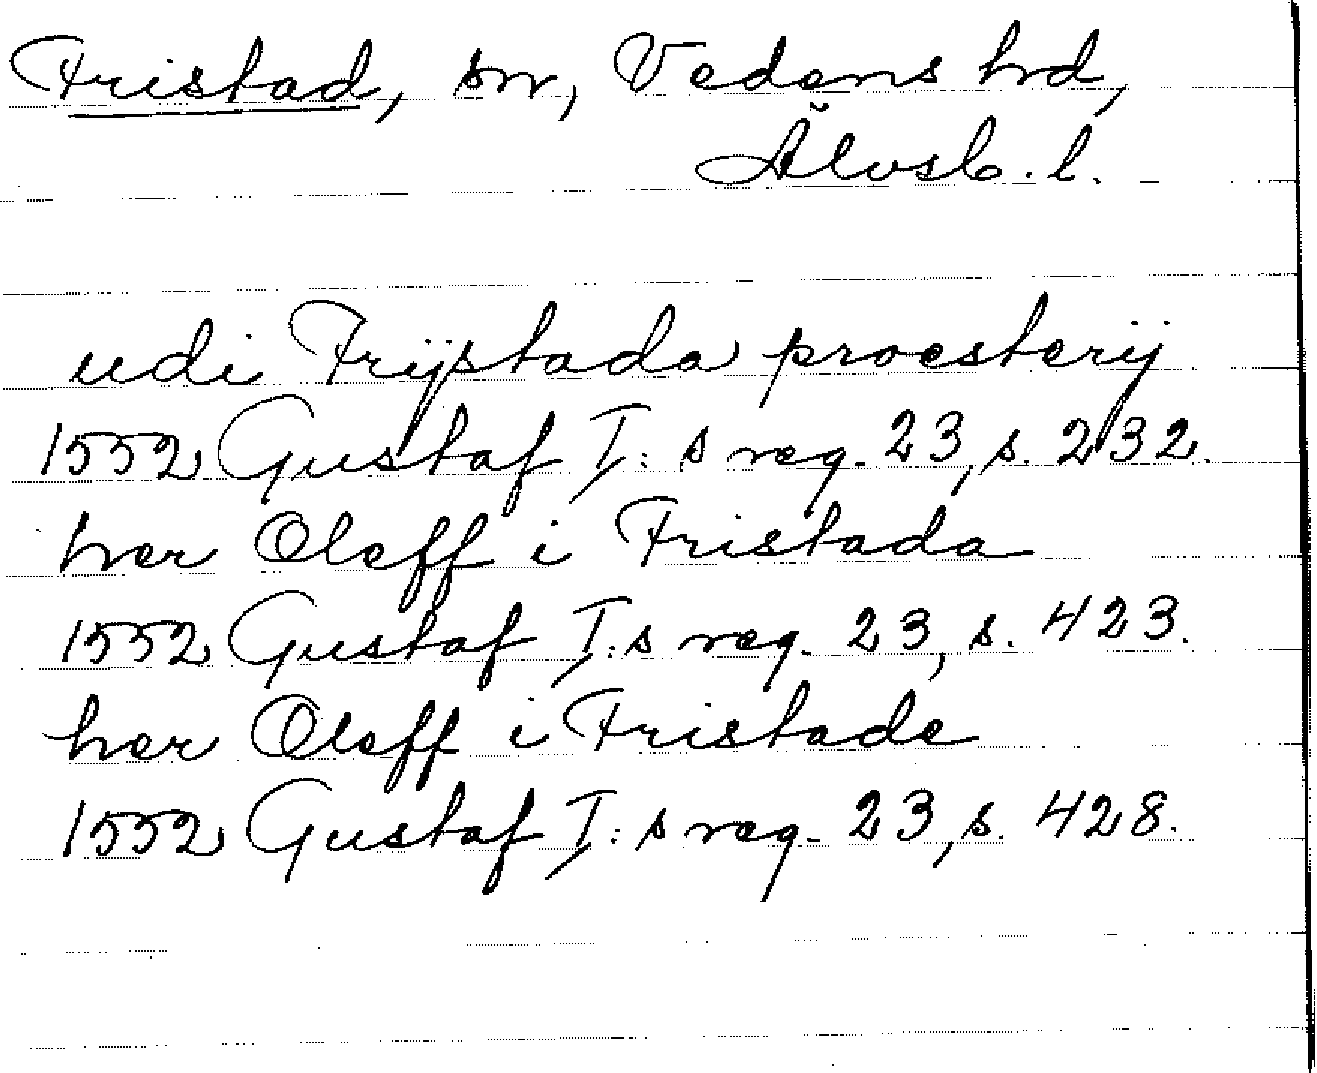 Fristad, sn, Vedens hd,
Älvsb. l.
udi Frijstada proesterij
1552 Gustaf I:s reg. 23, s. 232.
her Oleff i Fristada
1552 Gustaf I:s reg. 23, s. 423.
her Oleff i Fristade
1552 Gustaf I:s reg. 23, s. 428.